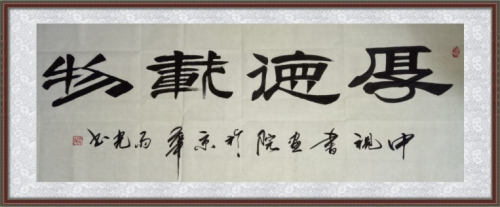 厚德載物
中視書畫院於京華雨光书